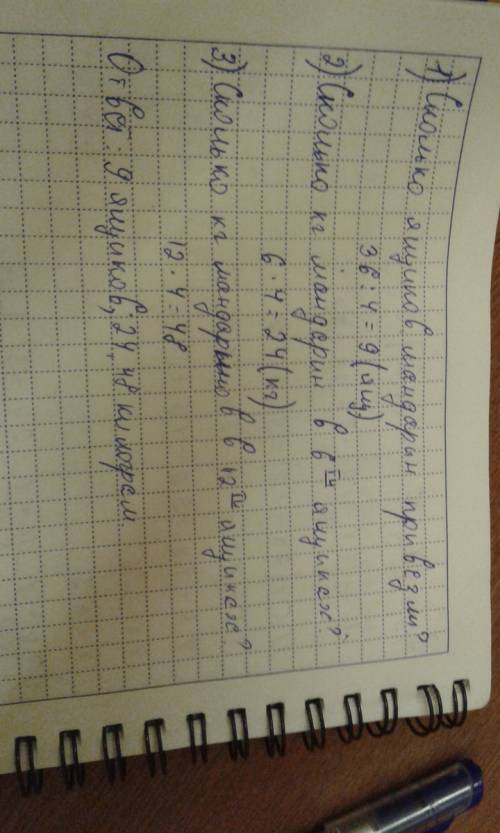 1) Сколько ящиков мандарин привезли?
36 : 4 = 9 (ящ)
2) Сколько кг мандарин в 6ти ящиках?
6 · 4 = 24 (кг)
3) Сколько кг мандаринов в 12ти ящиках?
12 · 4 = 48
Ответ: 9 ящиков, 24, 48 килограм